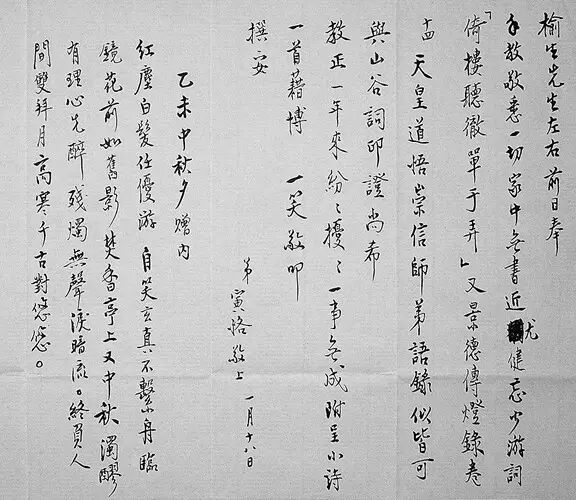 榆生先生左右前日奉
手教敬悉一切家中無書近尤健忘少游詞
「倚樓聽徹單于弄」又景德傳燈錄卷
十四 天皇道悟崇信師弟語錄似皆可
與山谷詞印證尚希
教正一年來紛々擾々一事無成附呈小詩
一首藉博 一笑敬叩
撰安
弟 寅恪敬上 一月十八日
乙未中秋夕贈內
紅塵白髮任優游 自笑玄真不繫舟 臨
鏡花前如舊影 焚香亭上又中秋 濁醪
有理心先醉 殘燭無聲淚暗流。終負人
間雙拜月 高寒千古對悠悠。